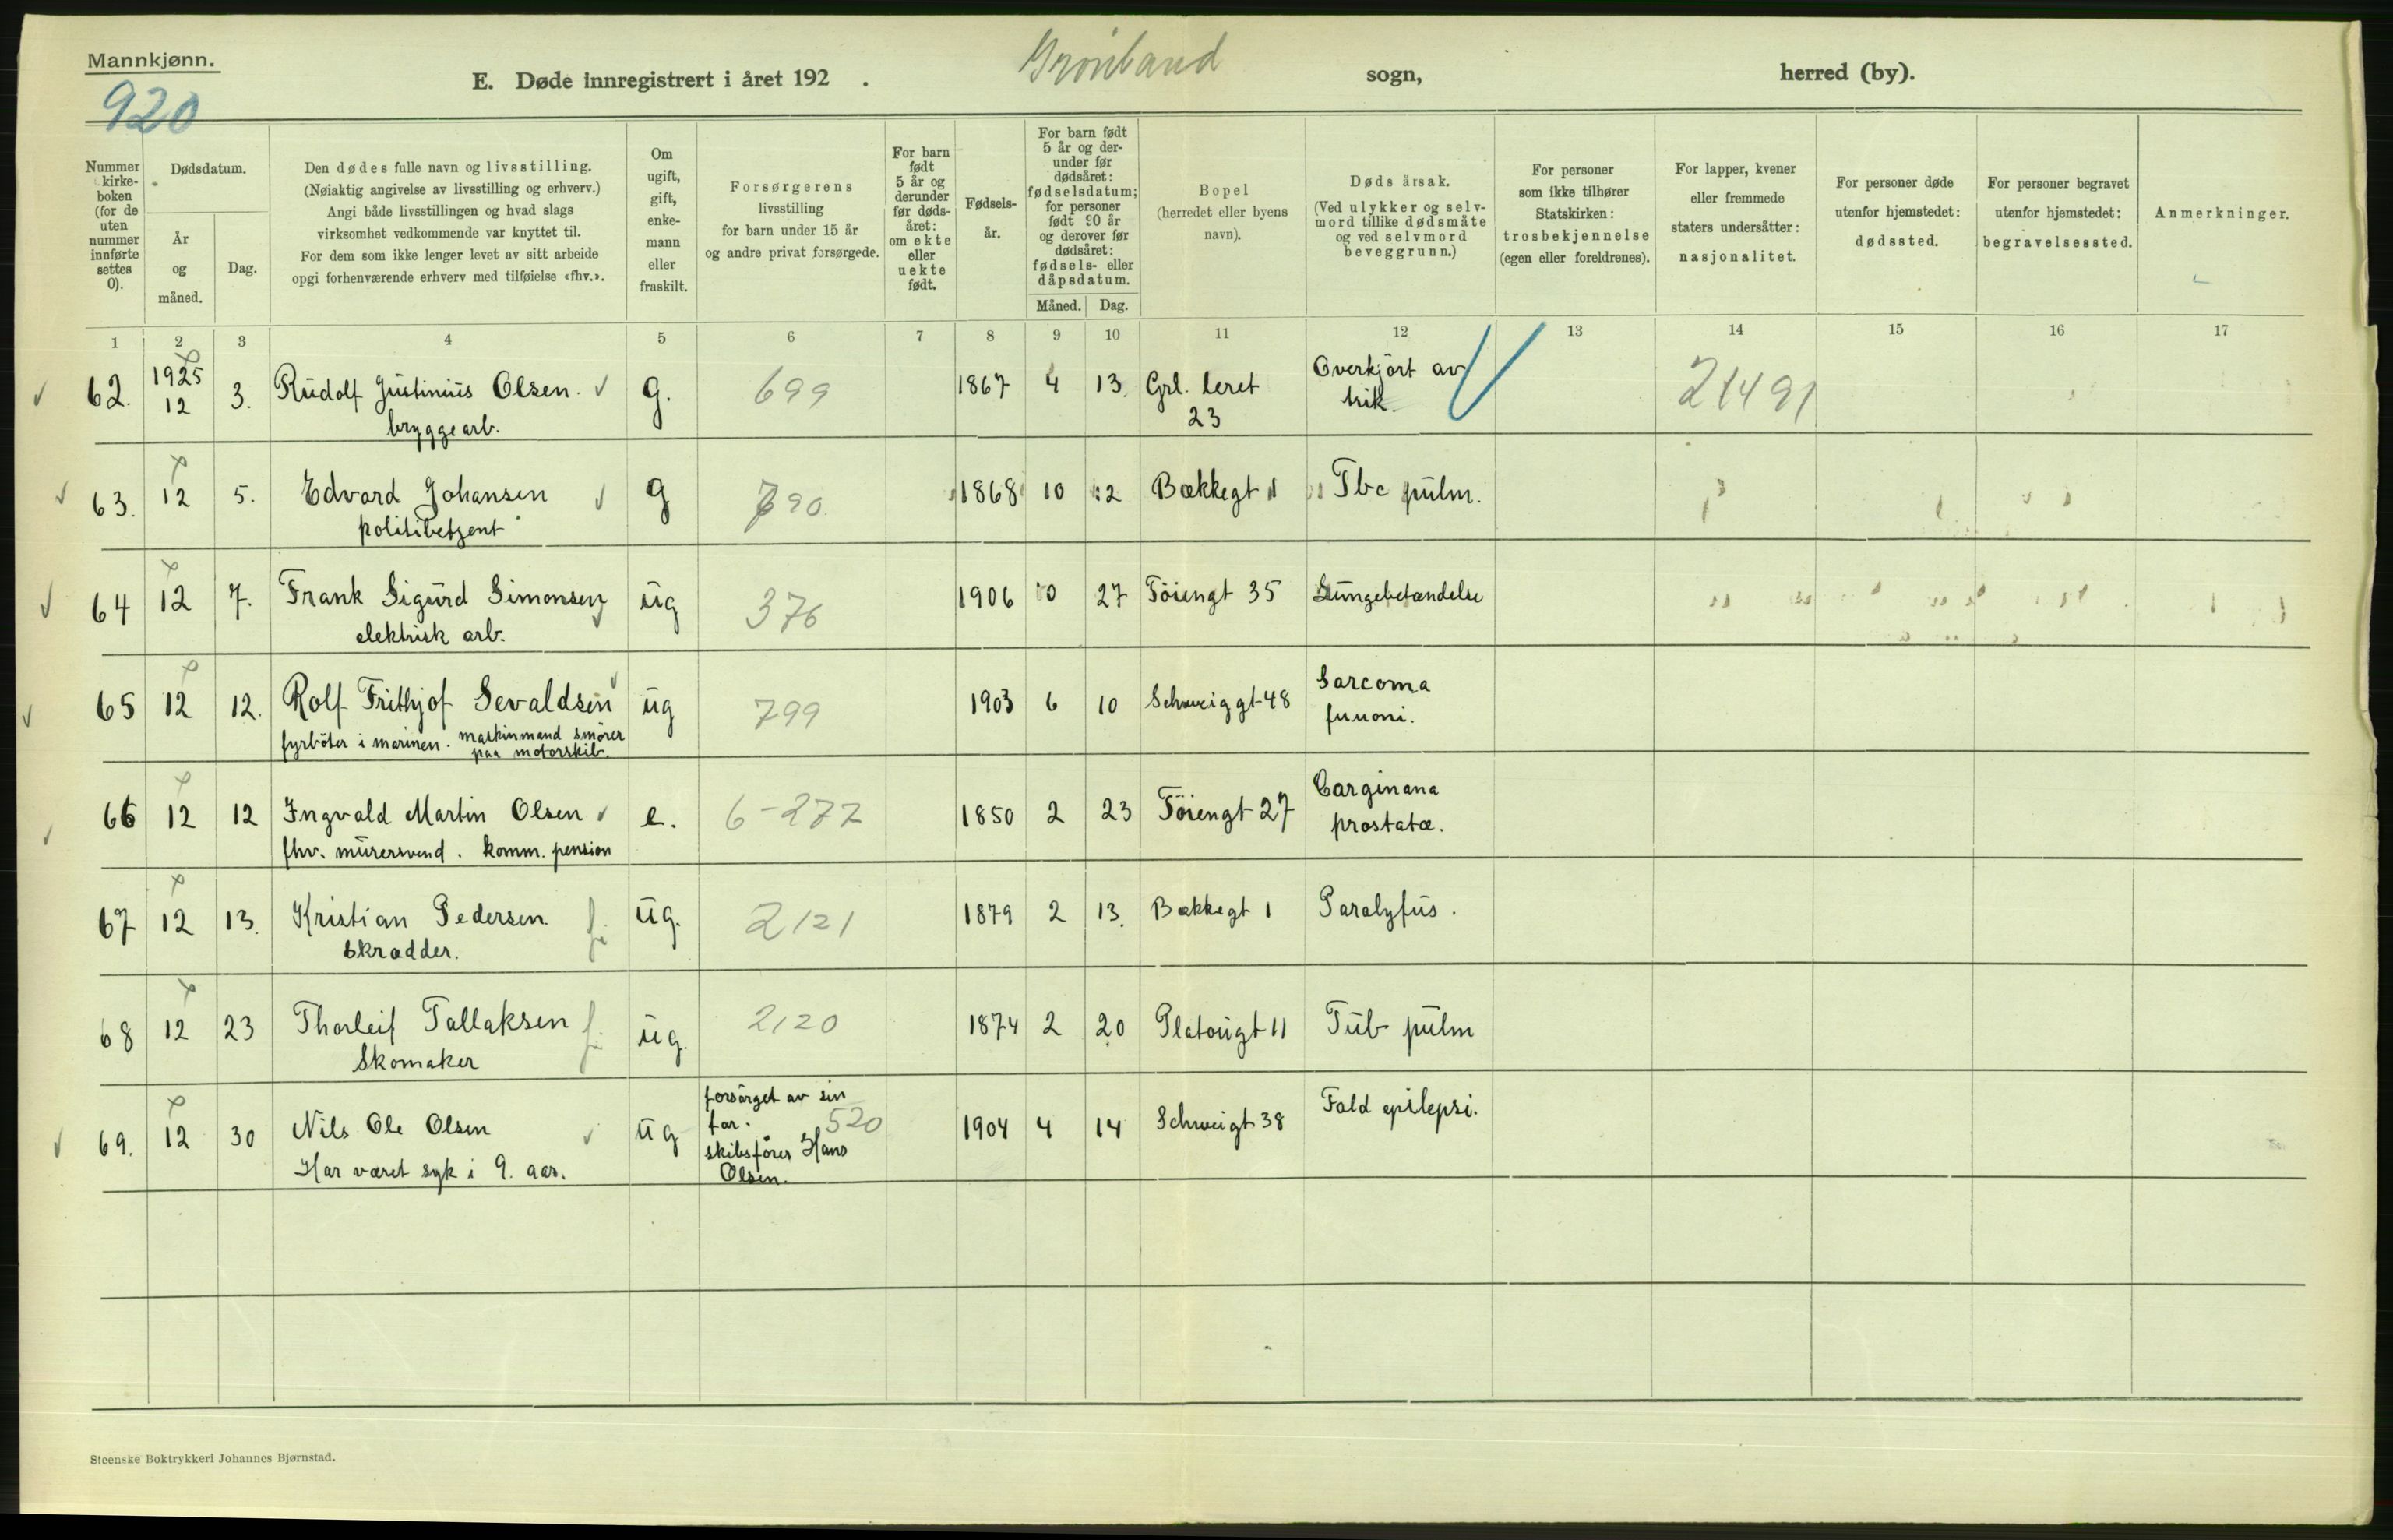 Mannkjønn.
920
E. Døde innregistrert i året 192 .
Grønland
sogn,
herred (by).
Nummer kirke- boken (for de uten nummer innførte settes 0).
Dødsdatum.
År og måned.
Dag.
Den dødes fulle navn og livsstilling.
(Nøiaktig angivelse av livsstilling og erhverv.)
Angi både livsstillingen og hvad slags
virksomhet vedkommende var knyttet til.
For dem som ikke lenger levet av sitt arbeide
opgi forhenværende erhverv med tilføielse «fhv.».
Om ugift, gift, enke- mann eller fraskilt.
Forsørgerens
livsstilling
for barn under 15 år
og andre privat forsørgede.
For barn født 5 år og derunder før døds- året: om ekte eller uekte født.
Fødsels- år.
For barn født 5 år og der- under før dødsåret: fødselsdatum; for personer født 90 år og derover før dødsåret: fødsels- eller dåpsdatum.
Måned.
Dag.
Bopel
(herredet eller byens
navn).
Døds årsak.
(Ved ulykker og selv-
mord tillike dødsmåte
og ved selvmord
beveggrunn.)
For personer
som ikke tilhører
Statskirken:
trosbekjennelse
(egen eller foreldrenes).
For lapper, kvener
eller fremmede
staters undersåtter:
nasjonalitet.
For personer døde
utenfor hjemstedet:
dødssted.
For personer begravet
utenfor hjemstedet:
begravelsessted.
Anmerkninger.
1 2 3 4 5 6 7 8 9 10 11 12 13 14 15 16 17
62. 1925 12 3. Rudolf Justinius Olsen. g. 699 1867 4 13. Grl. leret 23 Overkjört av 21491
bryggearb. trik.
63. 12 5. Edvard Johansen g 790. 1868 10 12 Bækkegt 11 Tbc pulm.
politibetjent
64 12 7. Frank Sigurd Simonsen ug 376 1906 10 27 Töiengt 35 Lungebetændelse
elektrisk arb.
65 12 12. Rolf Frithjof Sevaldsen ug 799 1903 6 10 Schweiggt 48 Sarcoma
fyrböter i marinen. maskinmand smörer
paa motorskib.
66 12 12 Ingvald Martin Olsen e. 6-277 1850 2 23 Töiengt 27 Carginana
fhv. murersvend. komm. pension prostatæ.
67 12 13. Kristian Pedersen ug. 2121 1879 2 13. Bækkegt 1 Paralyfus.
skrædder.
68 12 23 Thorleif Tallaksen ug. 2120 1874 2 20 Platougt 11 Tub pulm
Skomaker
69. 12 30 Nils Ole Olsen ug forsörget av sin far. 520 1904 4 14 Schweigt 38 Fald epilepsi.
Har været syk i 9. aar. skibsförer Hans Olsen.
Steenske Boktrykkeri Johannes Bjørnstad.